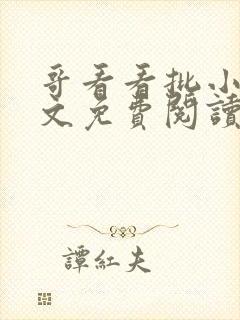 哥看看批小
文免費閱讀
譚紅夫